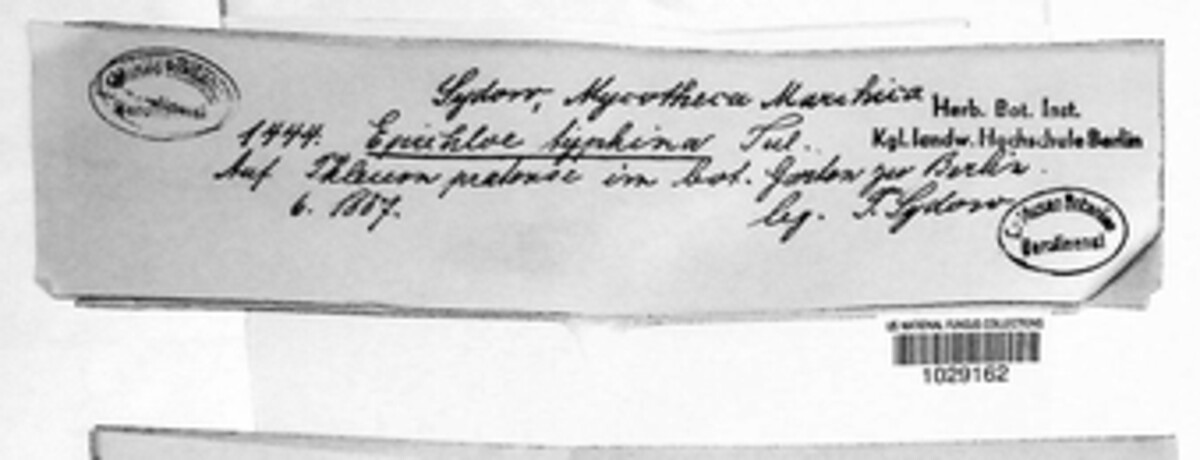 Sydow, Mycotheca Marchica
Herb. Bot. Inst.
Kgl. landw. Hochschule Berlin
1444. Epichloe typhina Tul.
Auf Phleum pratense im bot. Garten zu Berlin.
6. 1887. leg. P. Sydow
Botan
Berolinensi
US NATIONAL FUNGUS COLLECTIONS
1029162